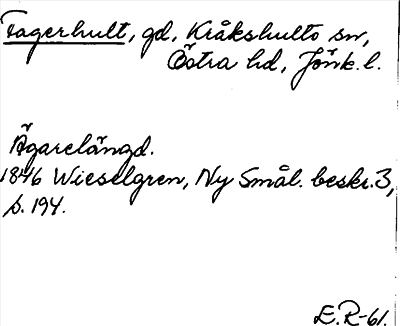 Fagerhult, gd, Kråkshults sn,
Östra hd, Jönk. l.
Ägarelängd.
1846 Wieselgren, Ny Smål. beskr. 3,
s. 194.
E. R-61.